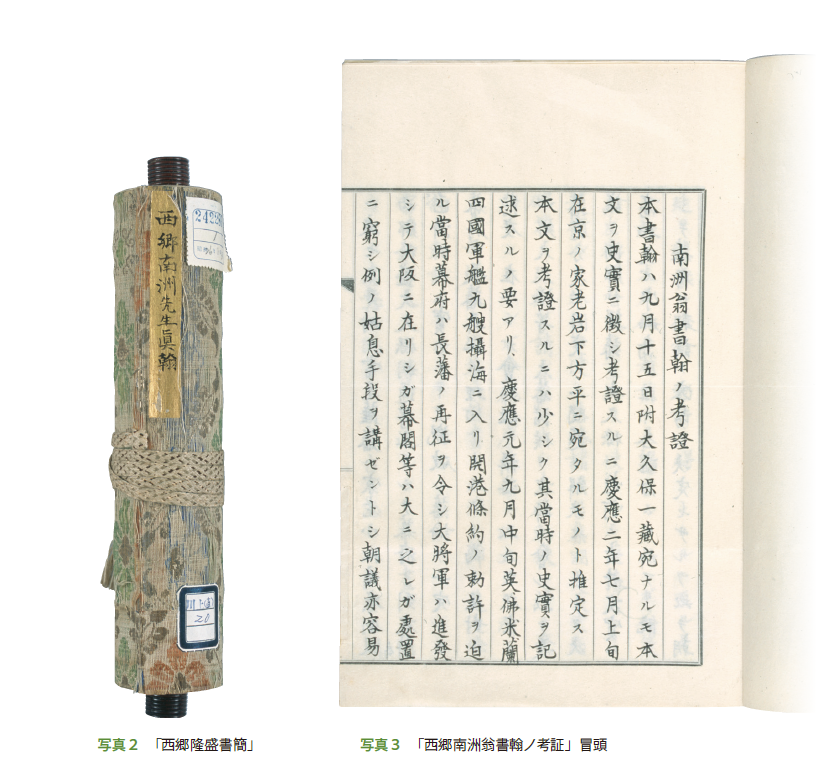 西郷南洲先生眞翰
2428
20
南洲翁書翰ノ考證
本書翰ハ九月十五日附大久保一藏宛ナルモ本
文ヲ史實ニ徴シ考證スルニ慶應二年七月上旬
在京ノ家老岩下方平ニ宛タルモノト推定ス
本文ヲ考證スルニハ少シク其當時ノ史實ヲ記
逑スルノ要アリ、慶應元年九月中旬英佛米蘭
四國軍艦九艘攝海ニ入リ開港條約ノ勅許ヲ迫
ル當時幕府ハ長藩ノ再征ヲ令シ大將軍ハ進發
シテ大阪ニ在リシガ幕閣等ハ大ニ之レガ處置
ニ窮シ例ノ姑息手段ヲ講ゼントシ朝議亦容易
写真2 「西郷隆盛書簡」
写真3 「西郷南洲翁書翰ノ考証」冒頭